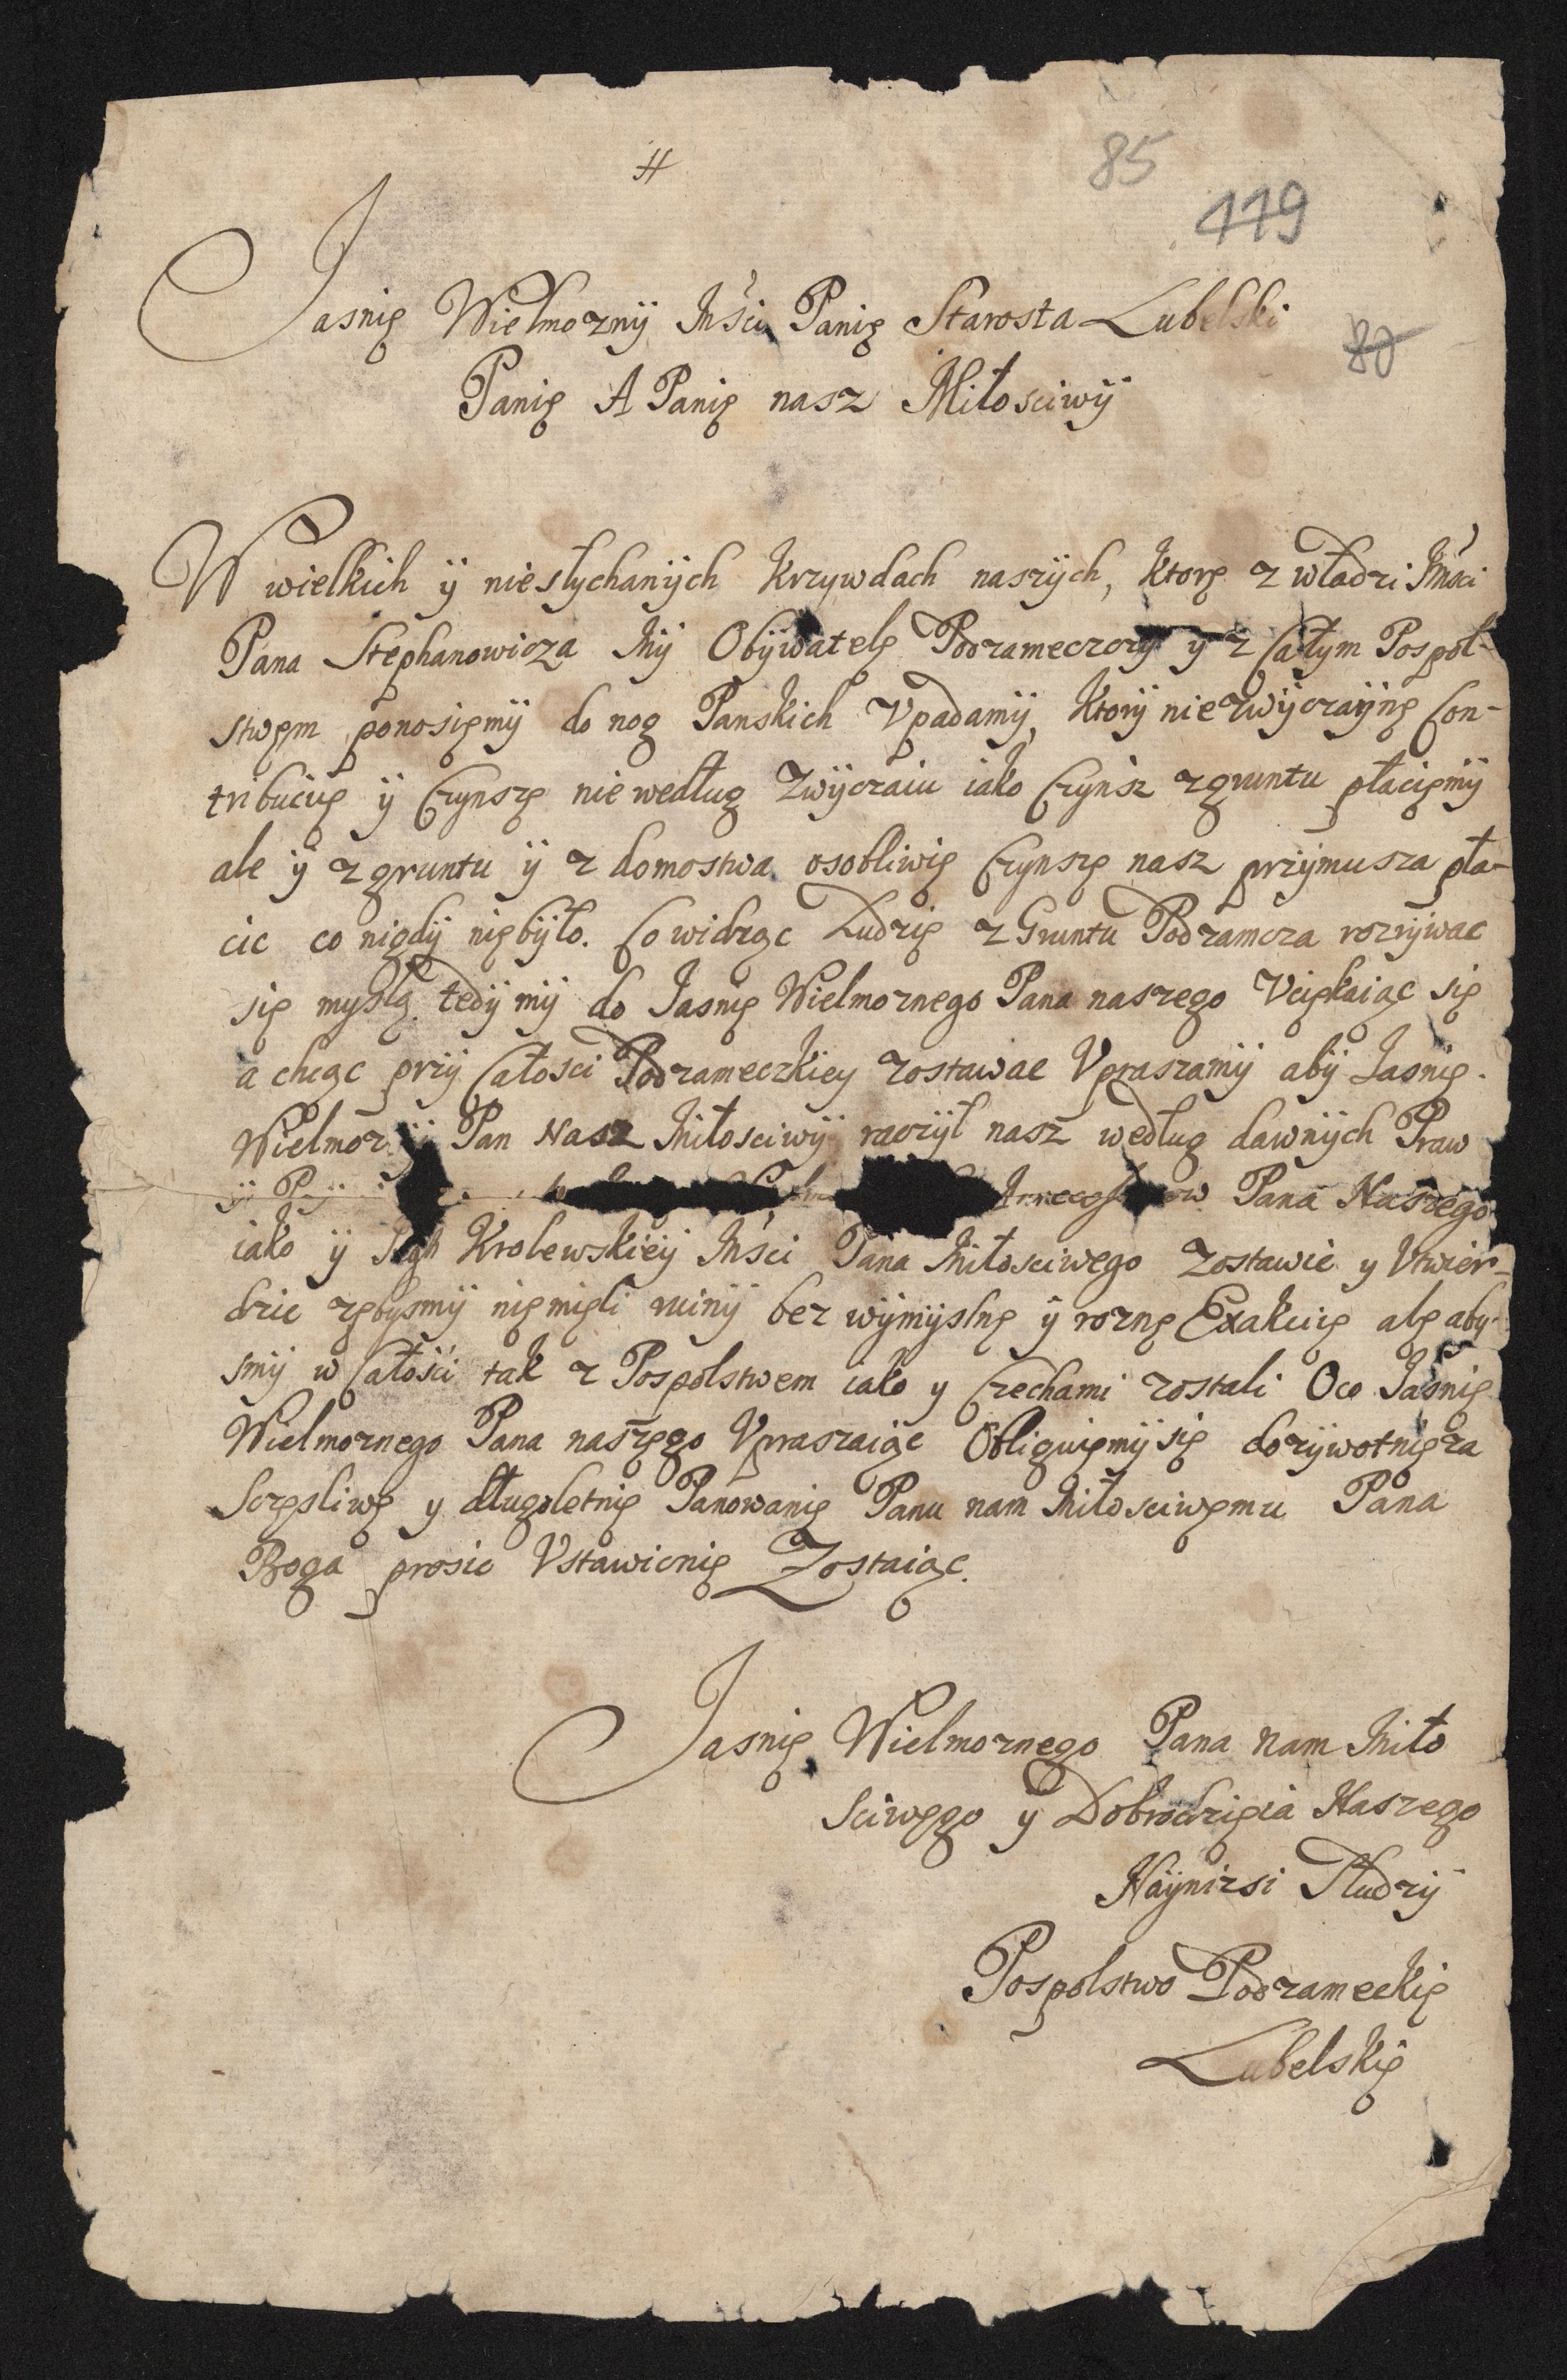 #
85
119
80
Jasnie Wielmozny Jmści Panie Starosta Lubelski
Panie A Panie nasz Miłosciwÿ
W wielkich ÿ niesłychanÿch Krzywdach naszÿch, ktore z władzi Jmsci
Pana Stephanowicza Mÿ Obÿwatele Podzameczczy y z Całym Pospol-
stwem ponosiemÿ do nog Panskich Vpadamÿ, ktorÿ nie zwÿczaÿne Con-
tribucije ÿ Czynsze nie według Zwÿczaiu iako Czÿnsz z gruntu płaciemÿ
ale ÿ z gruntu ÿ z domostwa osobliwie Czynsze nasz przÿmusza pła-
cic co nigdÿ niebÿło. Co widząc Ludzie z Gruntu Podzamcza rozrÿwac
sie myslą tedÿ mÿ do Jasnie Wielmoznego Pana naszego Vciekaiąc sie
a chcąc przÿ Całosci Podzameczkiey zostawac Vpraszamÿ abÿ Jasnie
Wielmoz ÿ Pan Nasz Miłosciwÿ raczÿł nasz według dawnÿch Praw
ÿ Pana Naszego
iako ÿ Krolewskieÿ Jmści Pana Miłosciwego zostawic y Vtwier-
dzic zebysmÿ niemieli ruinÿ bez wÿmÿslne ÿ rozne Exakcie ale aby-
smÿ w Całości tak z Pospolstwem iako y Czechami zostali Oco Jasnie
Wielmoznego Pana naszego Vpraszaiąc Obliguiemÿ sie dozÿwotnie za
Sczesliwe y długoletnie Panowanie Panu nam Miłosciwemu Pana
Boga prosic Vstawicnie Zostaiąc.
Jasnie Wielmoznego Pana nam Miło
Sciwego ÿ Dobrodzieia Naszego
Naÿnizsi Słudzÿ
Pospolstwo Podzameckie
Lubelskie